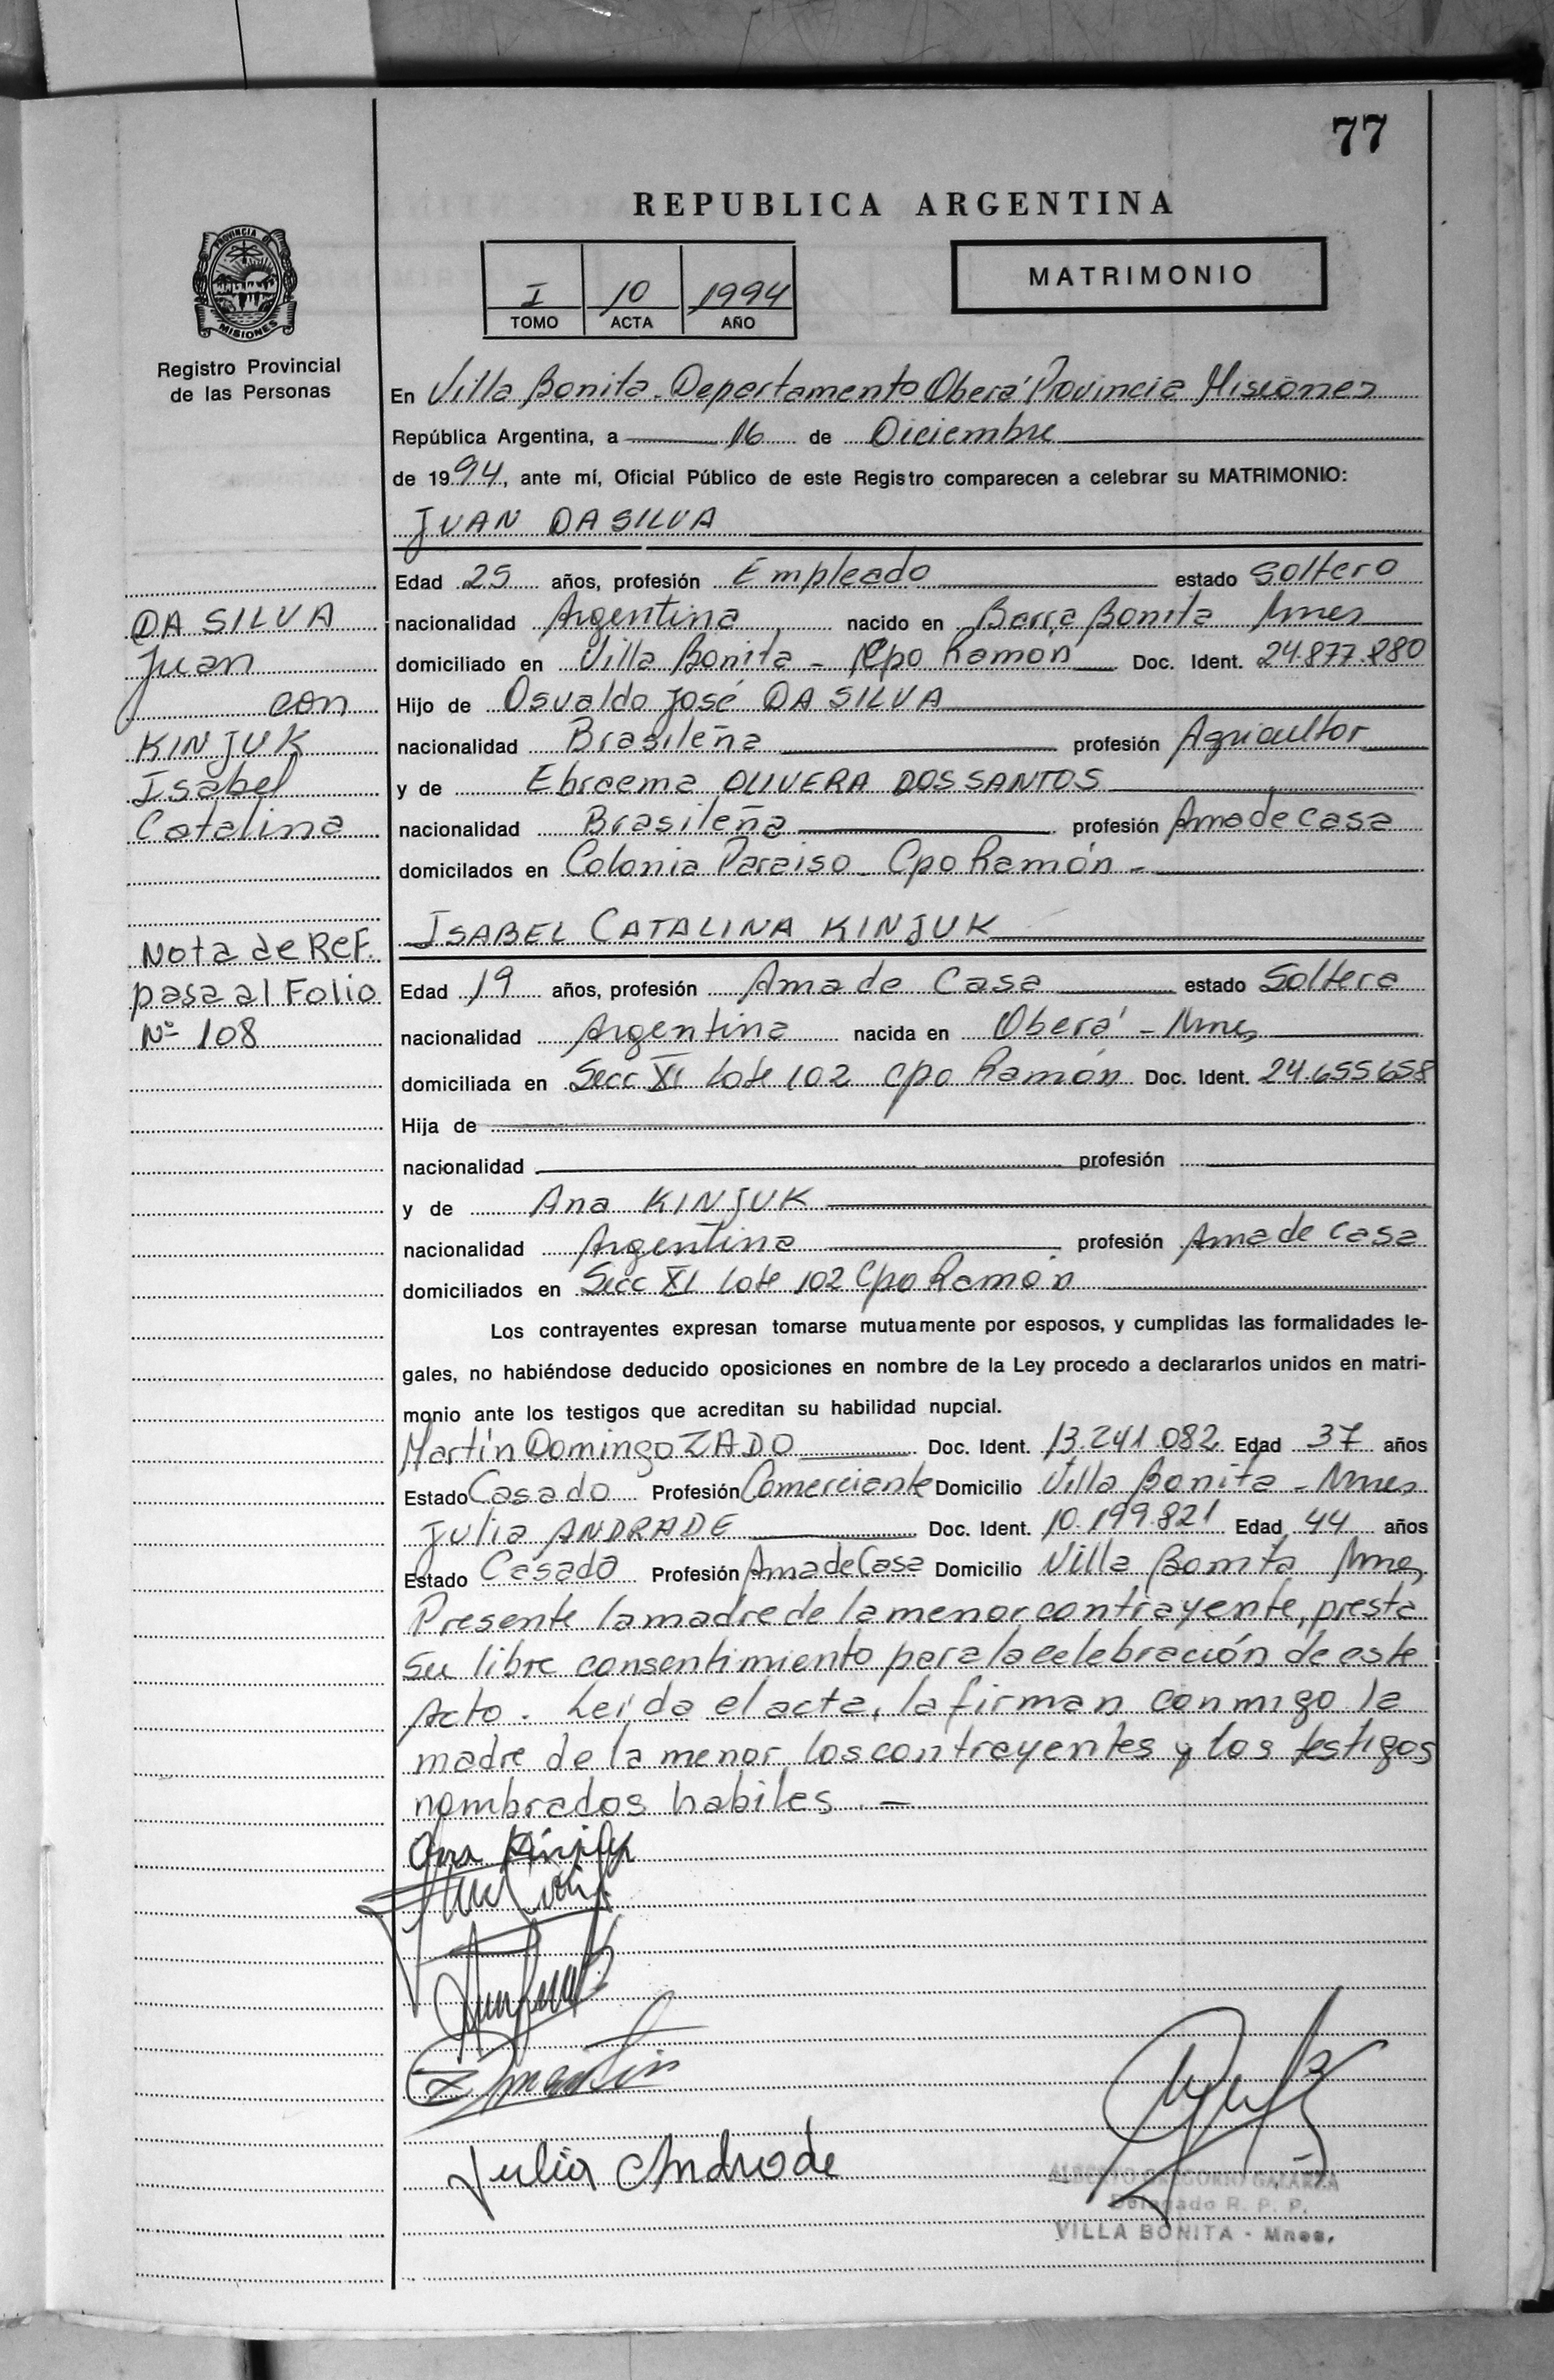 77
REPUBLICA ARGENTINA
PROVINCIA DE
MISIONES
Registro Provincial
de las Personas
I 10 1994
TOMO ACTA AÑO
MATRIMONIO
En Villa Bonita. Departamento Oberá Provincia Misiones
República Argentina, a 16 de Diciembre
de 1994, ante mí, Oficial Público de este Registro comparecen a celebrar su MATRIMONIO:
JUAN DA SILVA
Edad 25 años, profesión Empleado estado Soltero
nacionalidad Argentina nacido en Barra Bonita Mnes
domiciliado en Villa Bonita - Cpo Ramón Doc. Ident. 24.877.280
Hijo de Osvaldo José DA SILVA
nacionalidad Brasileña profesión Agricultor
y de Ebraema OLIVERA DOS SANTOS
nacionalidad Brasileña profesión Ama de casa
domicilados en Colonia Paraiso - Cpo Ramón -
DA SILVA
Juan
con
KINJUK
Isabel
Catalina
Nota de Ref.
pasa al Folio
Nº 108
ISABEL CATALINA KINJUK
Edad 19 años, profesión Ama de Casa estado Soltera
nacionalidad Argentina nacida en Oberá - Mnes
domiciliada en Secc XI Lote 102 Cpo Ramón Doc. Ident. 24.655658
Hija de
nacionalidad profesión
y de Ana KINJUK
nacionalidad Argentina profesión Ama de casa
domiciliados en Secc XI Lote 102 Cpo Ramón
Los contrayentes expresan tomarse mutuamente por esposos, y cumplidas las formalidades le-
gales, no habiéndose deducido oposiciones en nombre de la Ley procedo a declararlos unidos en matri-
monio ante los testigos que acreditan su habilidad nupcial.
Martín Domingo ZADO Doc. Ident. 13.241.082 Edad 37 años
Estado Casado Profesión Comerciante Domicilio Villa Bonita - Mnes
Julia ANDRADE Doc. Ident. 10.199.821 Edad 44 años
Estado Casado Profesión Ama de Casa Domicilio Villa Bonita Mnes
Presente la madre de la menor contrayente, presta
su libre consentimiento para la celebración de este
Acto. Leída el acta, la firman conmigo la
madre de la menor los contrayentes y los testigos
nombrados habiles. -
Ana Kinjuk
Z Martin
Julia Andrade
ALBERTO GREGORIO GALARZA
Delegado R. P. P.
VILLA BONITA - Mnes.